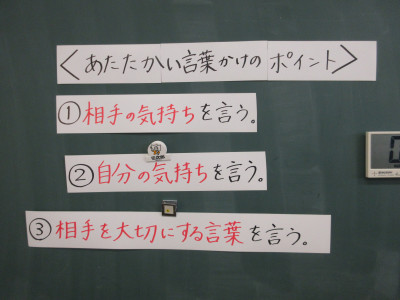 ＜あたたかい言葉かけのポイント＞
①相手の気持ちを言う。
②自分の気持ちを言う。
③相手を大切にする言葉を言う。